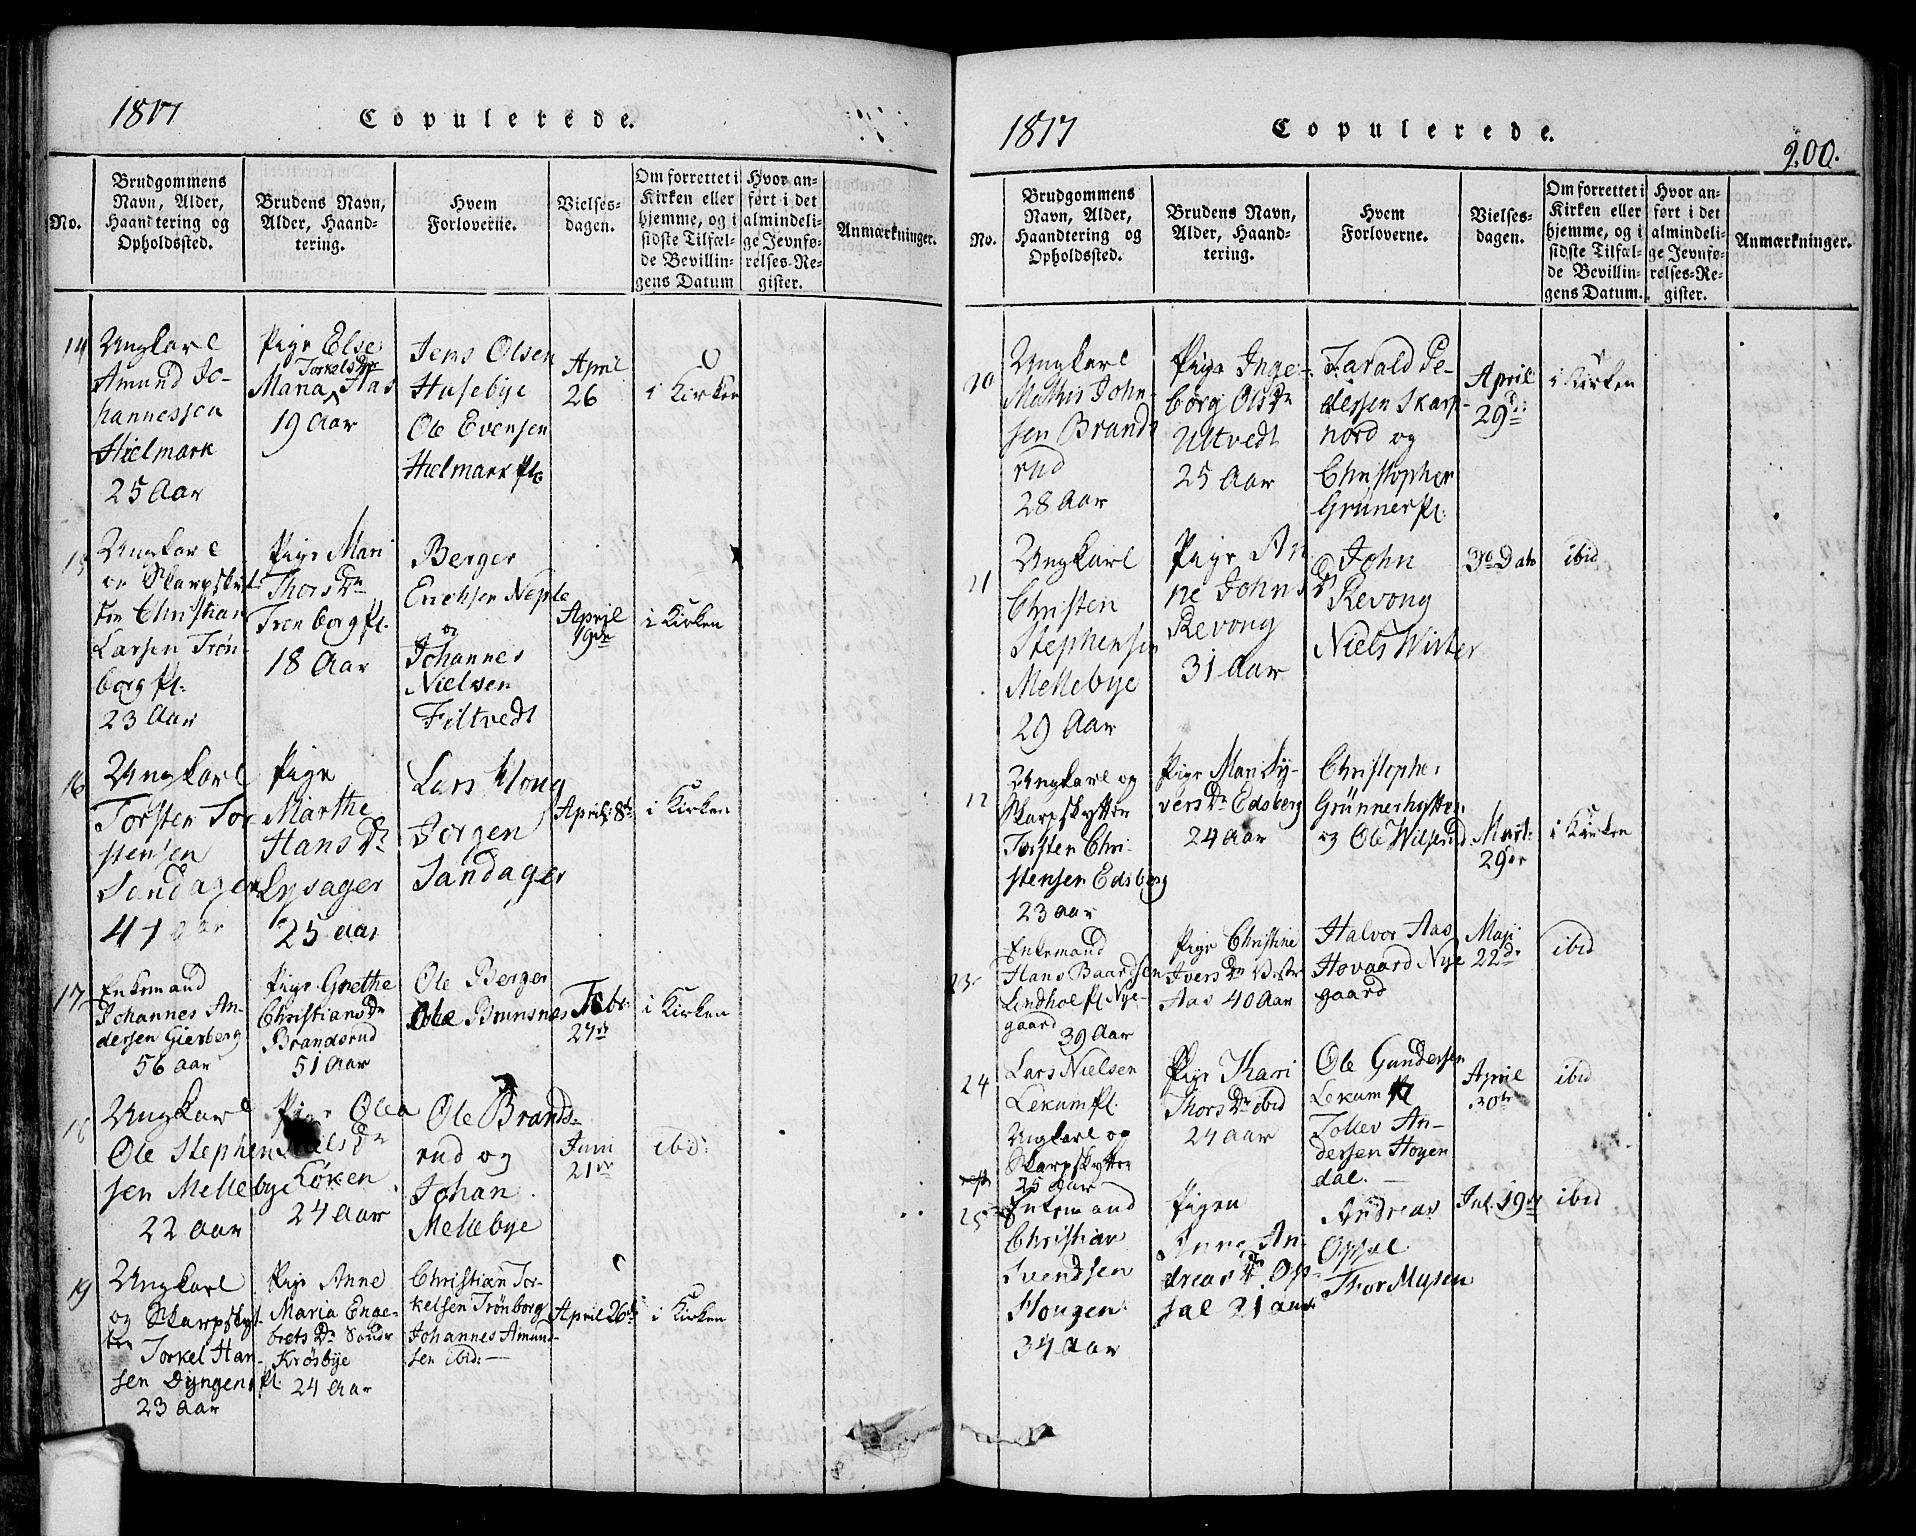 1817
Copulerede.
No.
Brudgommens
Navn, Alder,
Haandtering og
Opholdssted.
Brudens Navn,
Alder, Haand-
tering.
Hvem
Forloverne.
Vielses-
dagen.
Om forrettet i
Kirken eller
hjemme, og i
sidste Tilfæl-
de Bevillin-
gens Datum
Hvor an-
ført i det
almindeli-
ge Jevnfø-
relses-Re-
gister.
Anmærkninger.
14
Ungkarl
Amund Jo-
hannessen
Hielmark
25 Aar
Pige Else
Torkelsdr
Maria Aas
19 Aar
Jens Olsen
Husebye
Ole Evensen
Hielmark pl.
April
26
i Kirken
15
Ungkarl
og Skarpskyt-
ter Christian
Larsen Trøn-
borg pl.
23 Aar
Pige Mari
Thors Dr
Trønborg pl.
18 Aar
Berger
Erichsen Neple
og
Johannes
Nielsen
Filtvedt
April
19de
i Kirken
16
Ungkarl
Torsten Tor
stensen
Sandager
41 Aar
Pige
Marthe
Hans Dr
Lysager
25 Aar
Lars Moug
Jørgen
Sandager
April 8de
i Kirken
17
Enkemand
Johannes An-
dersen Gierberg
56 Aar
Pige Grethe
Christians Dr
Brandsrud
51 Aar
Ole Berger
Ole Brunsnæs
Febr.
27de
i Kirken
18
Ungkarl
Ole Stephen
sen Mellebye
22 Aar
Pige Olea
Niels Dr
Køken
24 Aar
Ole Brands-
rud og
Johan
Mellebye
Juni
21de
ibid:
19
Ungkarl
og Skarpskyt-
ter Torkel Han-
sen Dyngen pl.
23 Aar
Pige Anne
Maria Enge-
brets Dr Søndr
Krøsbye
24 Aar
Christian Tor-
kelsen Trønborg
Johannes Amund-
sen ibid:
April 26de
i Kirken
1817
Copulerede.
200.
No.
Brudgommens
Navn, Alder,
Haandtering og
Opholdssted.
Brudens Navn,
Alder, Haand-
tering.
Hvem
Forloverne.
Vielses-
dagen.
Om forrettet i
Kirken eller
hjemme, og i
sidste Tilfæl-
de Bevillin-
gens Datum.
Hvor an-
ført i det
almindeli-
ge Jevnfø-
relses-Re-
gister.
Anmærkninger.
20
Ungkarl
Mathis John-
sen Brands
rud
28 Aar
Pige Inge-
borg Ols Dr
Ultvedt
25 Aar
Harald Pe-
dersen Skarp-
nord og
Christopher
Grüner pl.
April
29de
i Kirken
21
Ungkarl
Christen
Stephensen
Mellebye
29 Aar
Pige An
ne Johns Dr
Revong
31 Aar
John
Revong
Niels Winter
ibid
22
Ungkarl og
Skarpskytter
Torsten Chri-
stensen Edsberg
23 Aar
Pige Mari Sy-
vers Dr Edsberg
24 Aar
Christophe.
Grünnerhytten
og Ole Wilsrud
Mart:
29de
i Kirken
23
Enkemand
Hans Baardsen
Lindhol pl. Nye-
gaard 39 Aar
Pige Christine
Ivers Dr
Aas 40 Aar
Halvor Aas
Hovaard Nye
gaard
Maji
22de
ibid
24
Lars Nielsen
Lekum pl.
Ungkarl og
Skarpskytter
25 Aar
Pige Kari
Thors Dr ibid
24 Aar
Ole Gundersen
Lekum pl
Tollev An-
dersen Høyen
dal.
April
30te
ibid
25
Enkemand
Christian
Svendsen
Hougen
34 Aar
Pigen
Anne An-
dreas Dr Op-
sal 21 aar
Andreas
Opsal
Thor Mysen
Jul. 19de
ibid